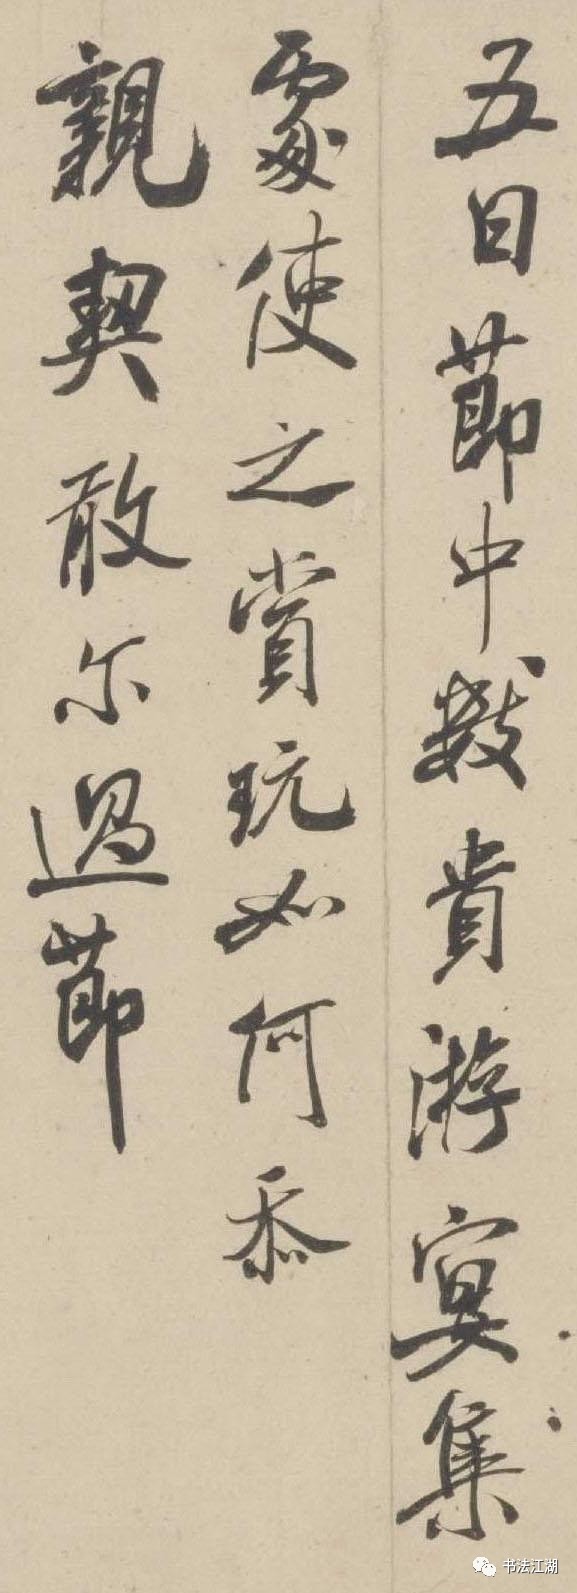 五日節中數貴游宴集
處使之賞玩如何忝
親契敢尔過節
书法江湖